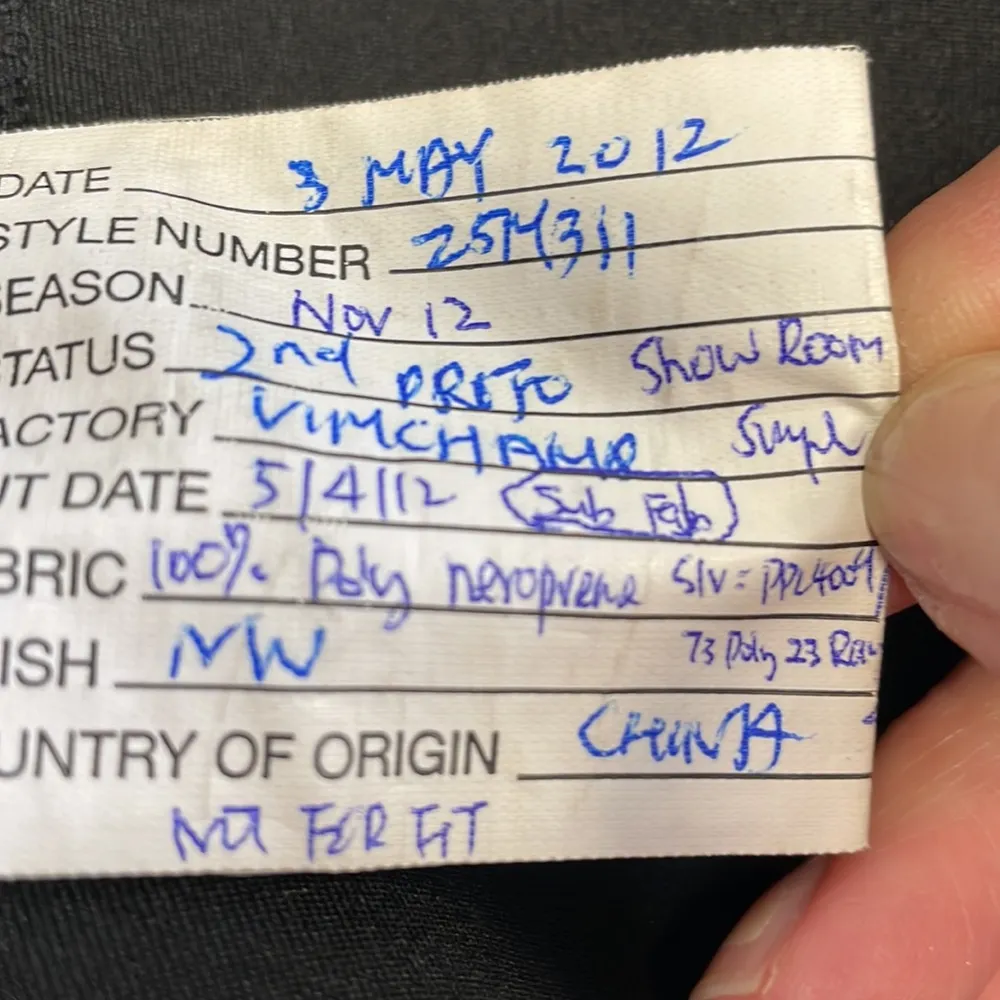 DATE 3 MAY 2012
STYLE NUMBER 25M311
EASON Nov 12
TATUS 2nd PROTO Show Room
ACTORY VIMCHAMP
UT DATE 5/4/12 Sub Fab
BRIC 100% Poly neroprene Slv =
ISH NW 73 Poly 23
UNTRY OF ORIGIN CHINA
NOT FOR FIT